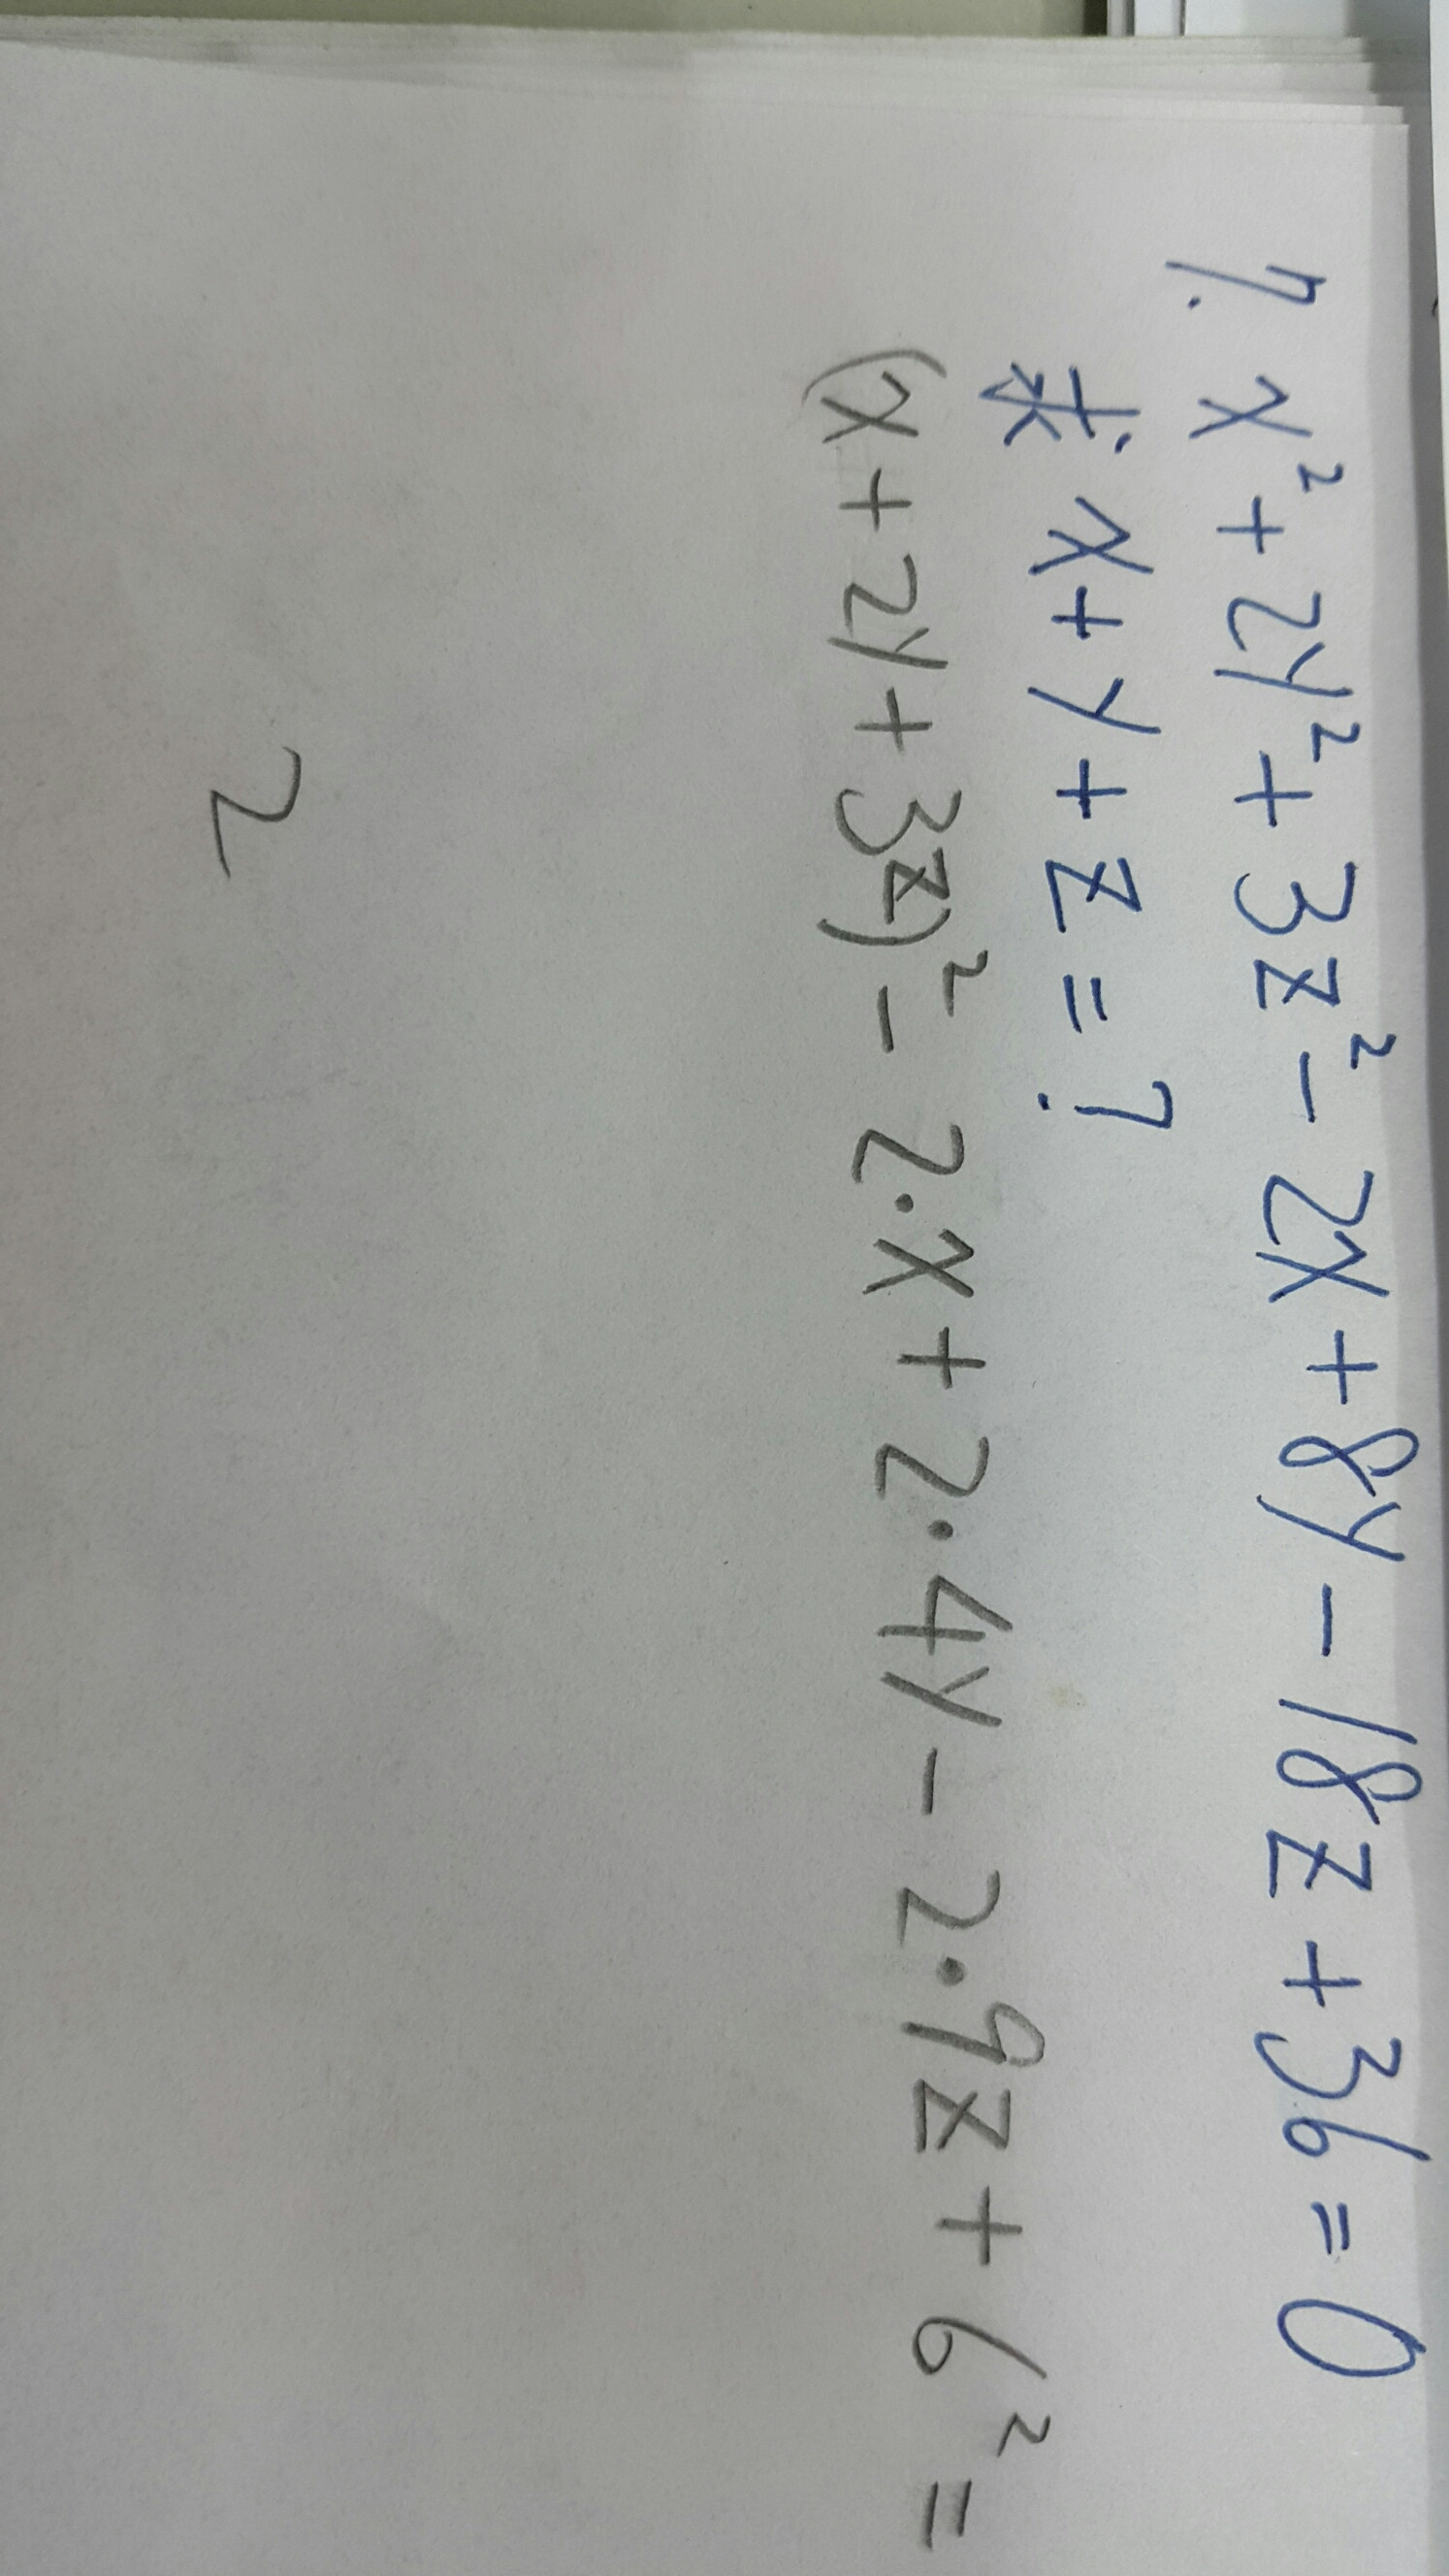 7. x² + 2y² + 3z² - 2x + 8y - 18z + 36 = 0
求 x + y + z = ?
(x + 2y + 3z)² - 2·x + 2·4y - 2·9z + 6² =
2